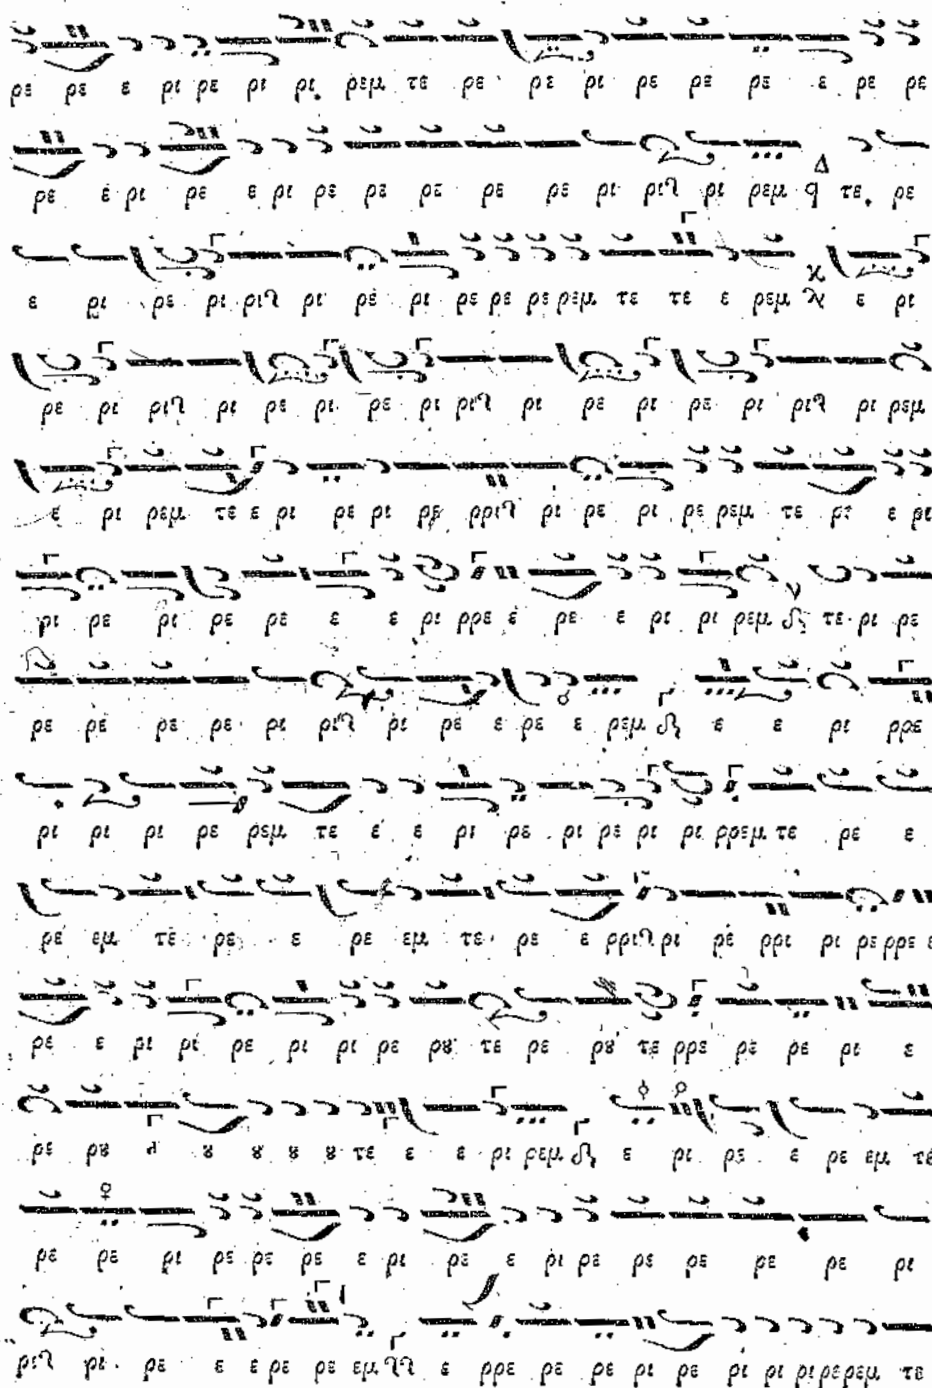 ρε ρε ε ρι ρε ρι ρι ρεμ τε ρε ρε ρι ρε ρε ρε ε ρε ρε
ρε ε ρι ρε ε ρι ρε ρε ρε ρε ρε ρι ριρ ρι ρεμ τε ρε
ε ρι ρε ρι ριρ ρι ρε ρι ρε ρε ρε ρεμ τε τε ε ρεμ ε ρι
ρε ρι ριρ ρι ρε ρι ρε ρι ριρ ρι ρε ρι ρε ρι ριρ ρι ρεμ
ε ρι ρεμ τε ε ρι ρε ρι ρε ρριρ ρι ρε ρι ρε ρεμ τε ρε ε ρι
ρι ρε ρι ρε ρε ε ε ρι ρρε ε ρε ε ρι ρι ρεμ τε ρι ρε
ρε ρε ρε ρε ρι ριρ ρι ρε ε ρε ε ρεμ ε ε ρι ρρε
ρι ρι ρι ρε ρεμ τε ε ε ρι ρε ρι ρε ρι ρι ρρεμ τε ρε ε
ρε εμ τε ρε ε ρε εμ τε ρε ε ρριρ ρι ρε ρρι ρι ρε ρρε ε
ρε ε ρι ρι ρε ρι ρι ρε ρȣ τε ρε ρȣ τε ρρε ρε ρε ρι ε
ρε ρȣ ȣ ȣ ȣ ȣ τε ε ε ρι ρεμ ε ρι ρε ε ρε εμ τε
ρε ρε ρι ρε ρε ρε ε ρι ρε ε ρι ρε ρε ρε ρε ρε ρι
ριρ ρι ρε ε ε ρε ρε εμ ε ρρε ρε ρε ρι ρε ρι ρι ρι ρε ρεμ τε